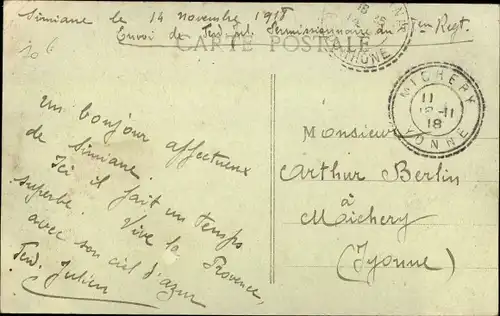 Simiane le 14 novembre 1918
Envoi de Ferd. Permissionnaire au Regt.
CARTE POSTALE
20 c
RHONE
MICHERY
11
18-11
18
YONNE
Un bonjour affectueux
de Simiane.
Ici il fait un temps
superbe. Vive la Provence,
avec son ciel d'azur
Ferd. Julien
Monsieur
Arthur Berlin
à
Michery
(Yonne)